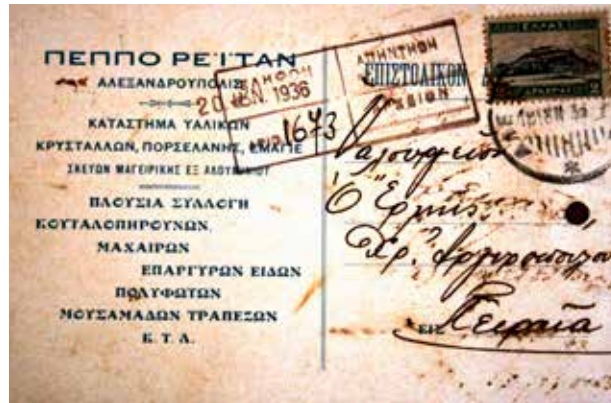 ΠΕΠΠΟ ΡΕΪΤΑΝ
ΑΛΕΞΑΝΔΡΟΥΠΟΛΙΣ
ΚΑΤΑΣΤΗΜΑ ΥΑΛΙΚΩΝ
ΚΡΥΣΤΑΛΛΩΝ, ΠΟΡΣΕΛΑΝΗΣ, ΕΜΑΓΙΕ
ΣΚΕΥΩΝ ΜΑΓΕΙΡΙΚΗΣ ΕΞ ΑΛΟΥΜΙΝΙΟΥ
ΠΛΟΥΣΙΑ ΣΥΛΛΟΓΗ
ΚΟΥΤΑΛΟΠΗΡΟΥΝΩΝ,
ΜΑΧΑΙΡΩΝ
ΕΠΑΡΓΥΡΩΝ ΕΙΔΩΝ
ΠΟΛΥΦΩΤΩΝ
ΜΟΥΣΑΜΑΔΩΝ ΤΡΑΠΕΖΩΝ
Κ. Τ. Λ.
ΕΛΗΦΘΗ
20 ΙΑΝ. 1936
1673
ΑΠΗΝΤΗΘΗ
ΕΠΙΣΤΟΛΙΚΟΝ
ΕΛΛΑΣ
Ὁ "Ἑρμῆς"
Χρ. Αργυροπούλου
ΕΙΣ Πειραιᾶ